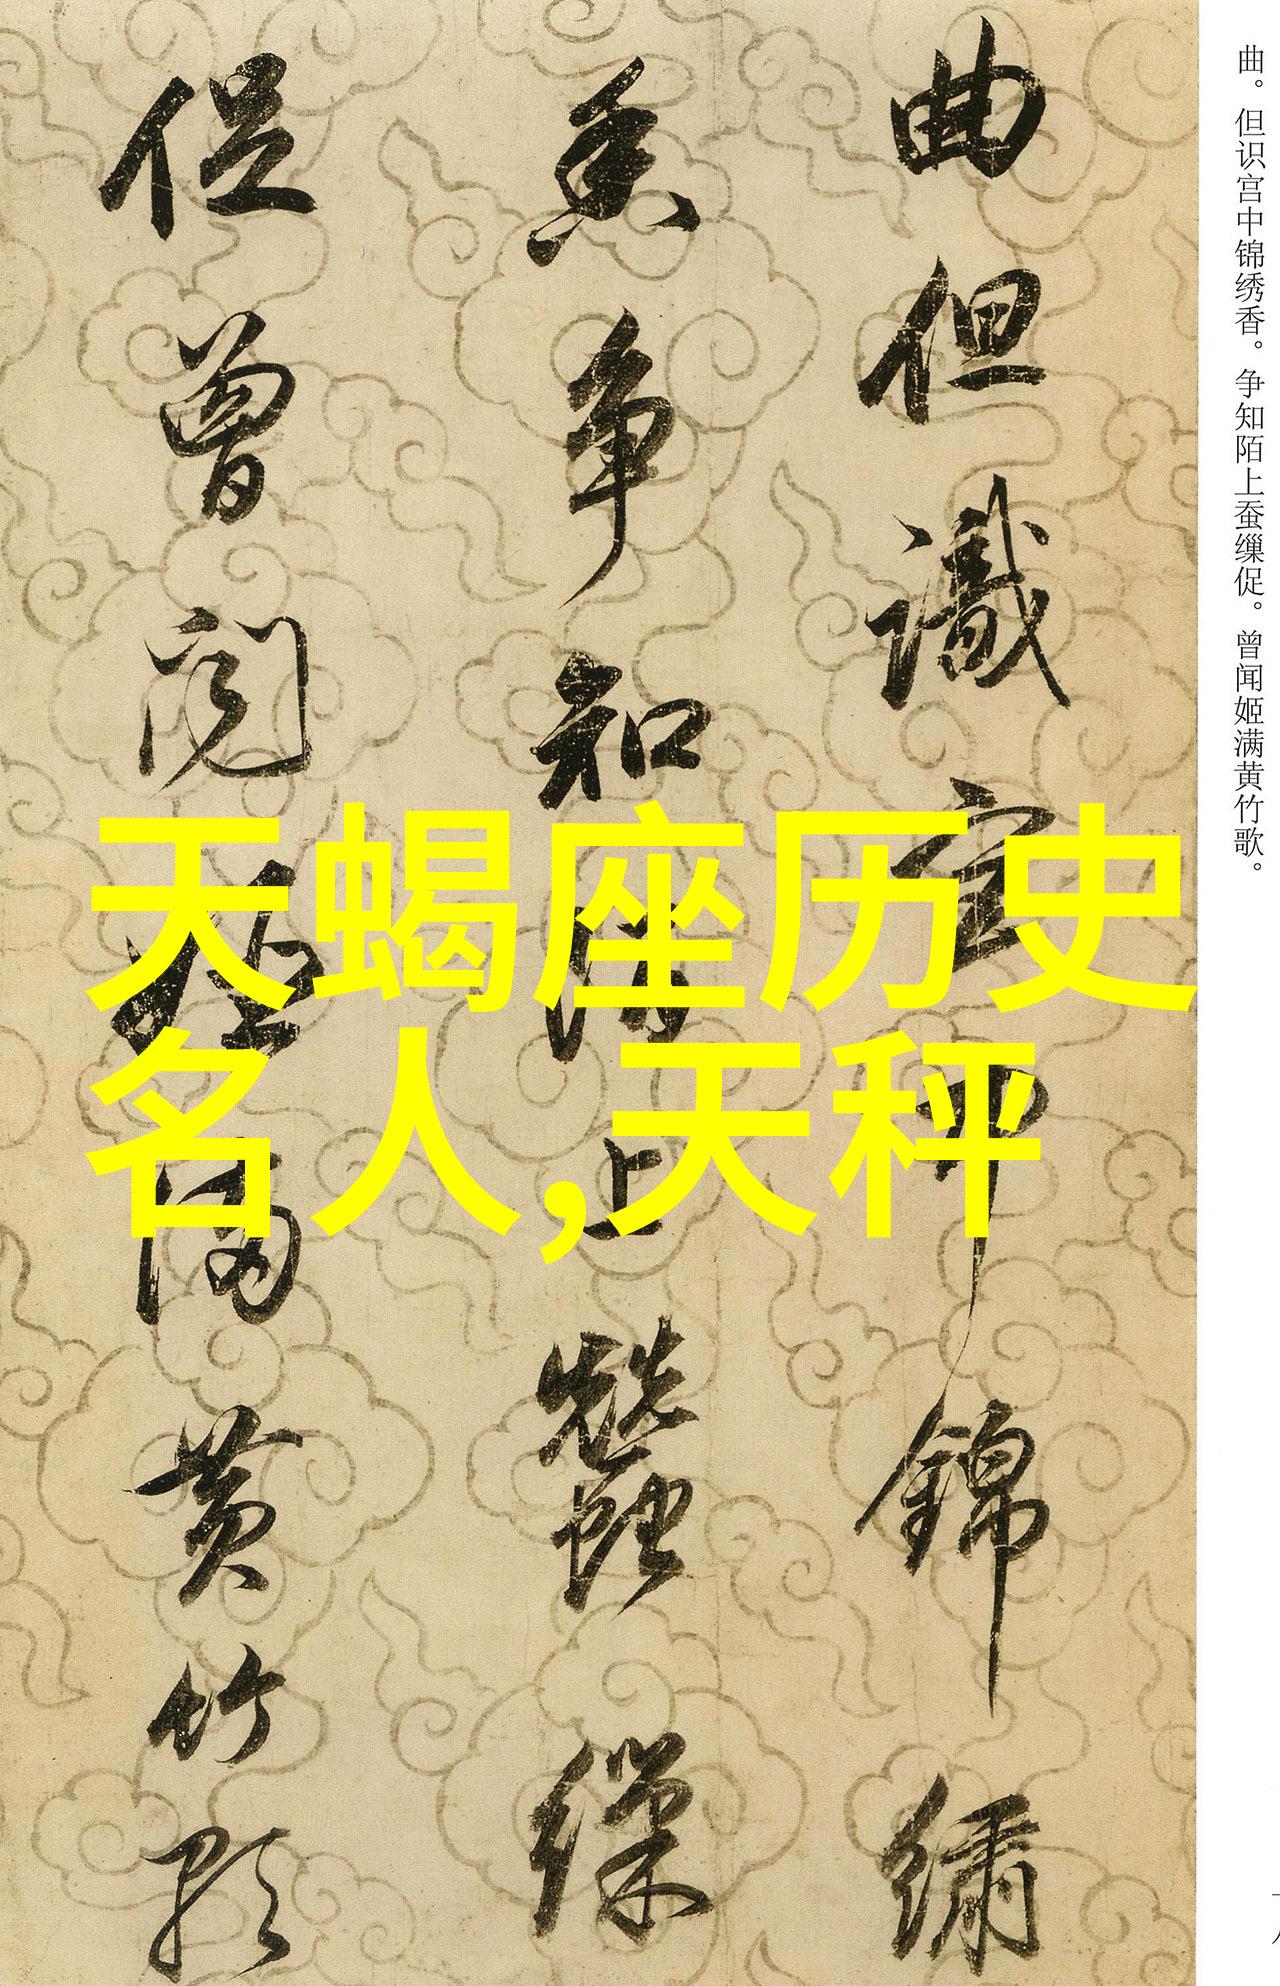 曲。但识宫中锦绣香。争知陌上蚕缫促。曾闻姬满黄竹歌。
曲但識宫中錦繡
香争知陌上蠶繅
促曾聞姬滿黄竹歌
天蝎座历史
名人,天秤